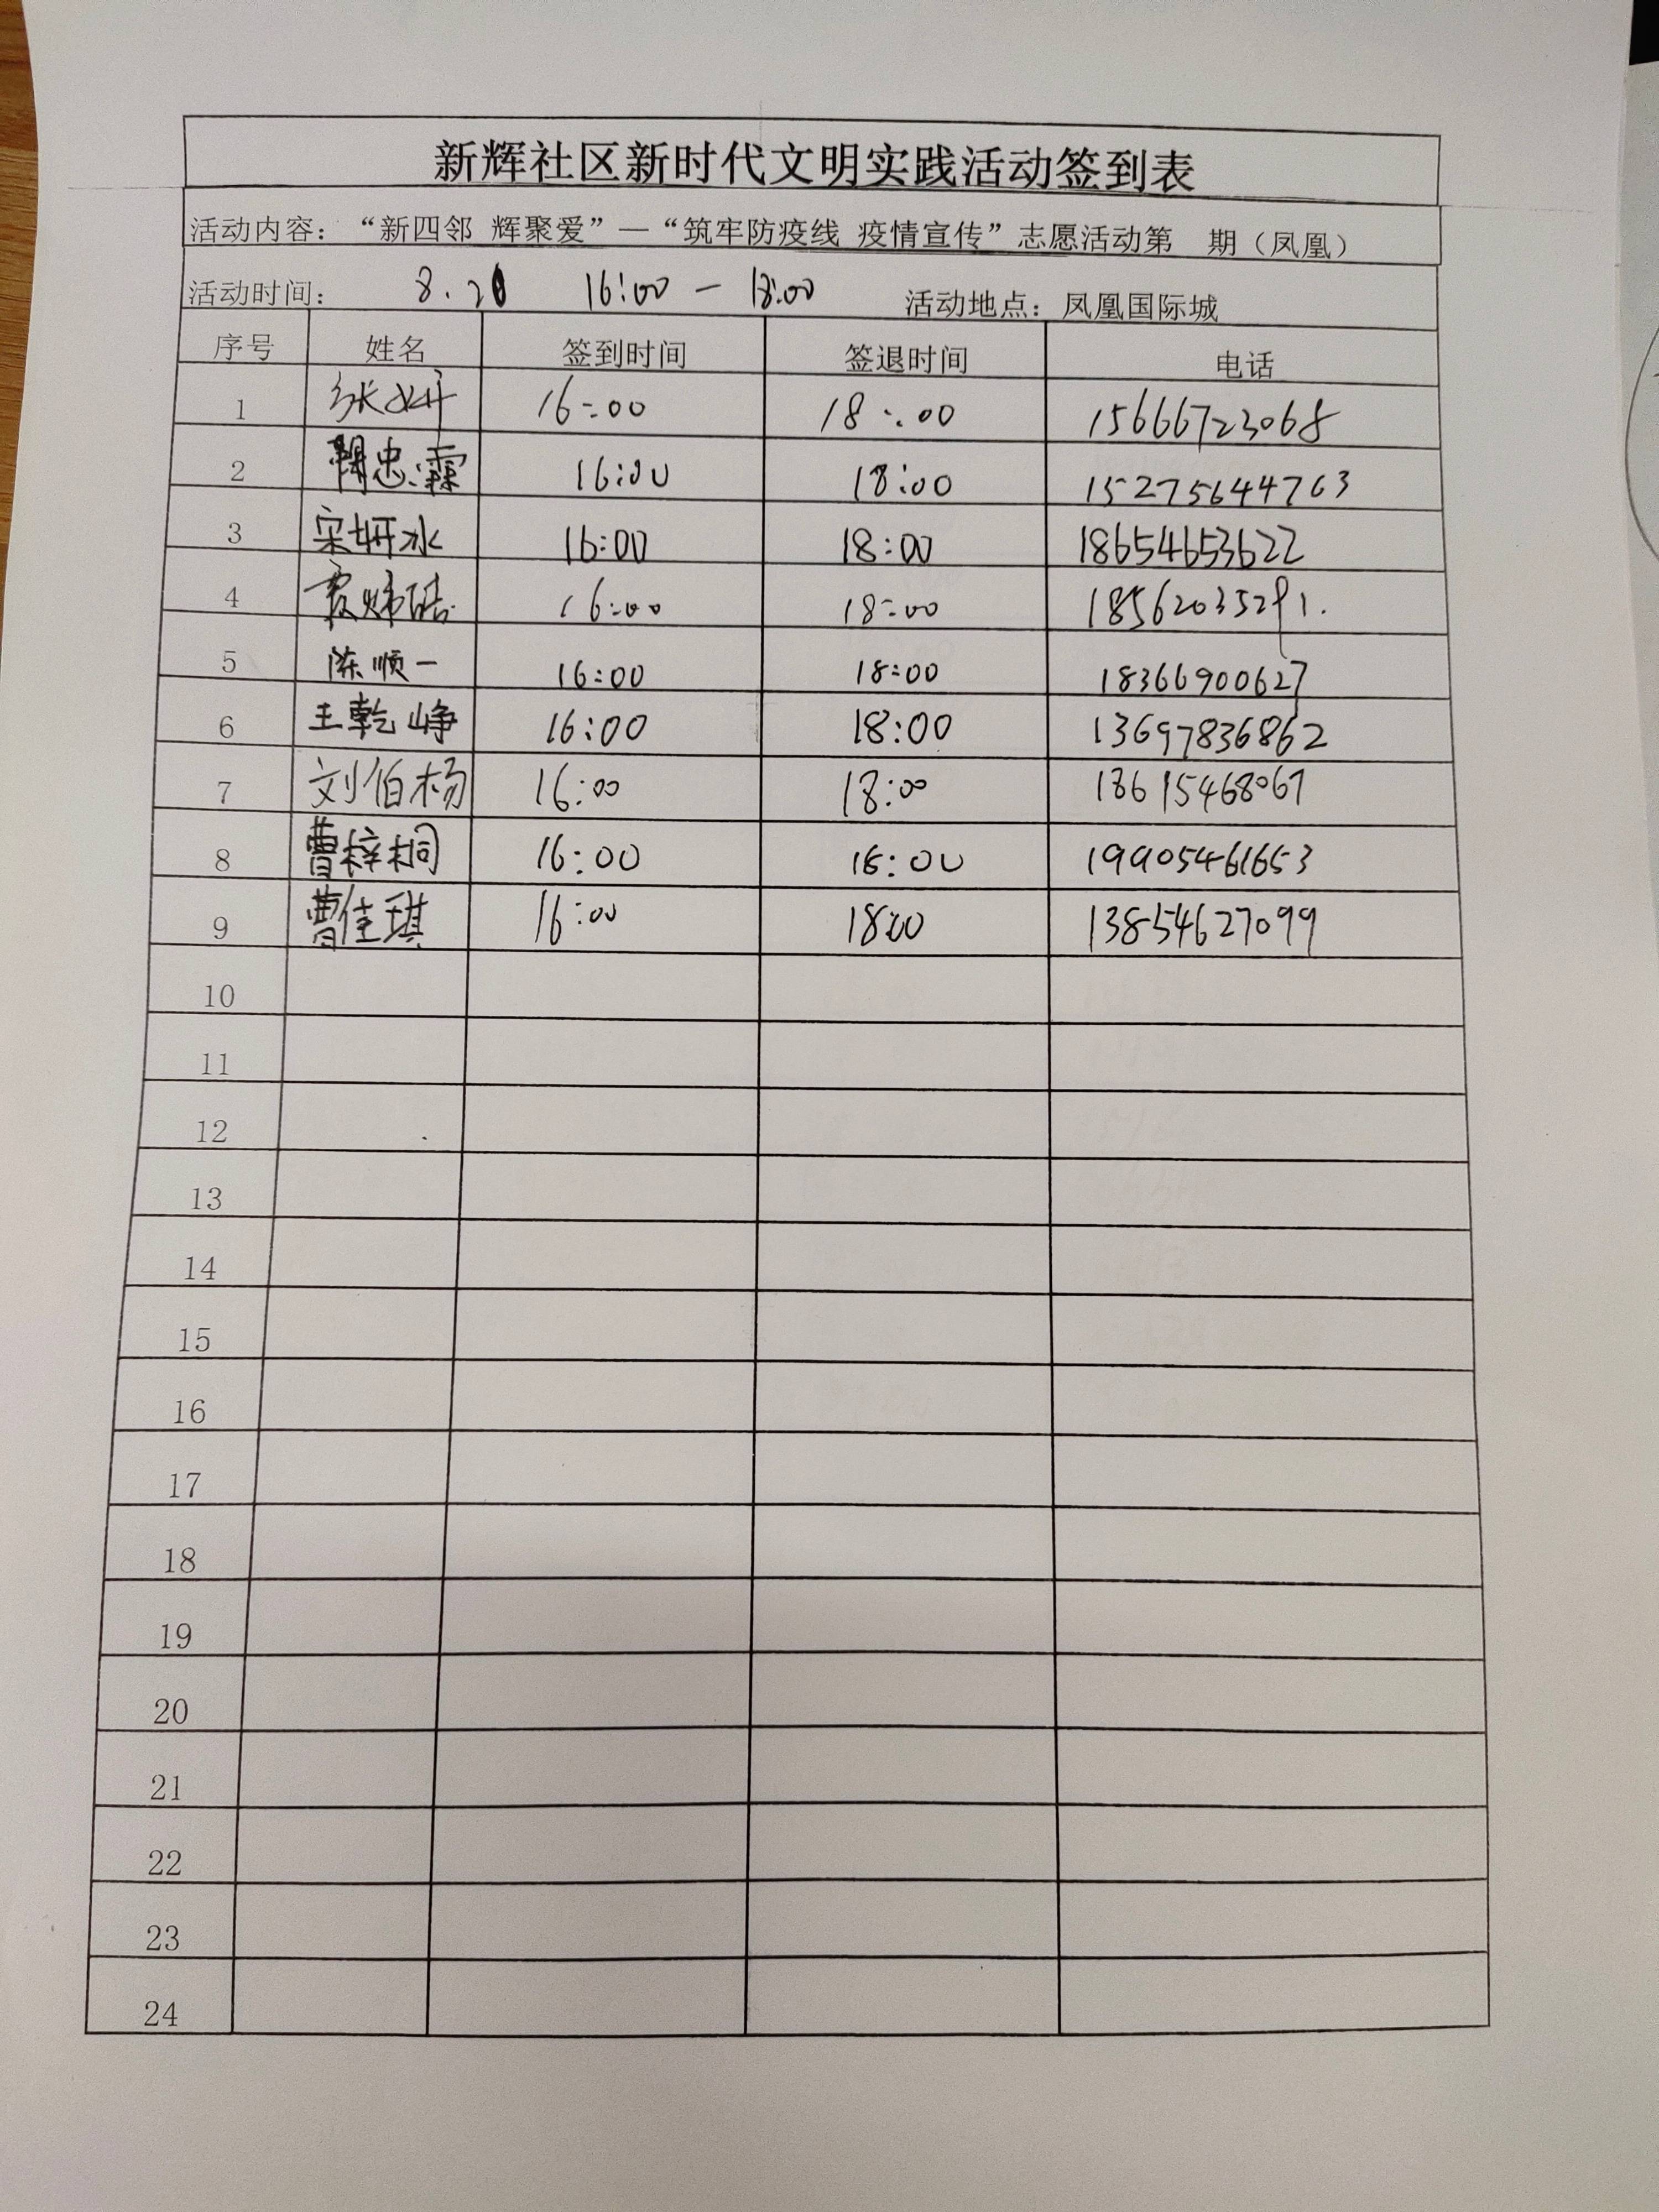 新辉社区新时代文明实践活动签到表
活动内容：“新四邻 辉聚爱”—“筑牢防疫线 疫情宣传”志愿活动第 期（凤凰）
活动时间： 8.20 16:00 — 18:00 活动地点：凤凰国际城
序号 姓名 签到时间 签退时间 电话
1 张妍 16:00 18:00 15666723068
2 忠霖 16:00 18:00 15275644763
3 宋妍冰 16:00 18:00 18654653622
4 16:00 18:00 18562035291.
5 陈顺一 16:00 18:00 18366900627
6 王乾峥 16:00 18:00 13697836862
7 刘伯杨 16:00 18:00 18615468067
8 曹梓桐 16:00 18:00 19905461653
9 曹佳琪 16:00 18:00 13854627099
10
11
12
13
14
15
16
17
18
19
20
21
22
23
24